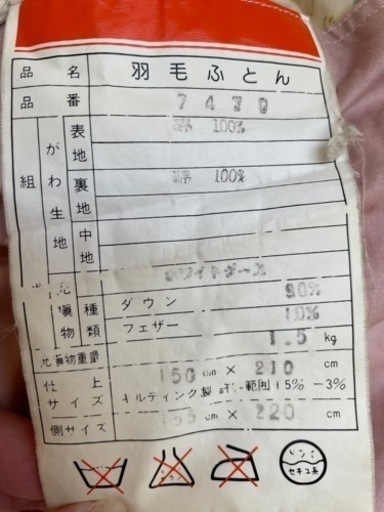 品名 羽毛ふとん
品番 7430
組 がわ生地 表地 綿 100%
裏地 綿 100%
中地
ホワイトグース
充填物 種類 ダウン 90%
フェザー 10%
充填物重量 1.5 kg
仕上サイズ 150 cm × 210 cm
キルティング製 範囲 15% -3%
側サイズ 155 cm × 220 cm
ドライ セキユ系